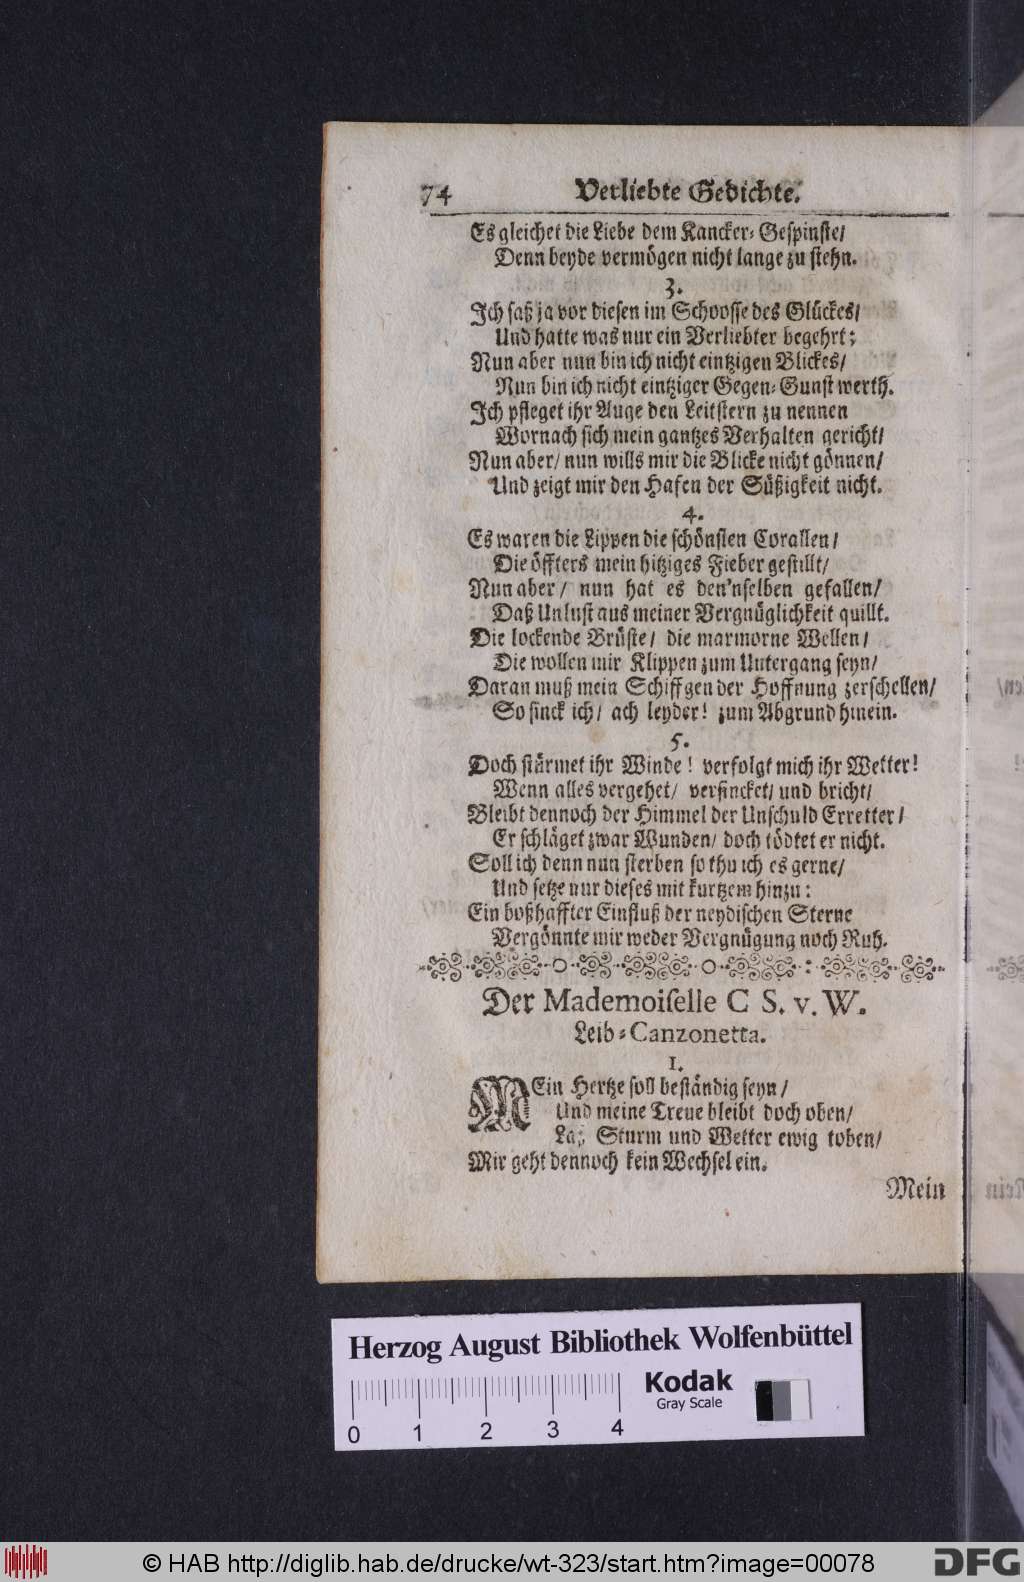 74 Verliebte Gedichte.
Es gleichet die Liebe dem Kancker-Gespinste/
Denn beyde vermögen nicht lange zu stehn.
3.
Ich saß ja vor diesen im Schoosse des Glückes/
Und hatte was nur ein Verliebter begehrt;
Nun aber nun bin ich nicht eintzigen Blickes/
Nun bin ich nicht eintziger Gegen-Gunst werth.
Ich pfleget ihr Auge den Leitstern zu nennen
Wornach sich mein gantzes Verhalten gericht/
Nun aber/ nun wills mir die Blicke nicht gönnen/
Und zeigt mir den Hafen der Süßigkeit nicht.
4.
Es waren die Lippen die schönsten Corallen/
Die öffters mein hitziges Fieber gestillt/
Nun aber/ nun hat es den'nselben gefallen/
Daß Unlust aus meiner Vergnüglichkeit quillt.
Die lockende Brüste/ die marmorne Wellen/
Die wollen mir Klippen zum Untergang seyn/
Daran muß mein Schiffgen der Hoffnung zerschellen/
So sinck ich/ ach leyder! zum Abgrund hinein.
5.
Doch stürmet ihr Winde! verfolgt mich ihr Wetter!
Wenn alles vergehet/ versincket/ und bricht/
Bleibt dennoch der Himmel der Unschuld Erretter/
Er schläget zwar Wunden/ doch tödtet er nicht.
Soll ich denn nun sterben so thu ich es gerne/
Und setze nur dieses mit kurtzem hinzu:
Ein boßhaffter Einfluß der neydischen Sterne
Vergönnte mir weder Vergnügung noch Ruh.
Der Mademoiselle C S. v. W.
Leib-Canzonetta.
1.
MEin Hertze soll beständig seyn/
Und meine Treue bleibt doch oben/
Laß Sturm und Wetter ewig toben/
Mir geht dennoch kein Wechsel ein.
Mein
Herzog August Bibliothek Wolfenbüttel
Kodak
Gray Scale
0 1 2 3 4
© HAB http://diglib.hab.de/drucke/wt-323/start.htm?image=00078
DFG